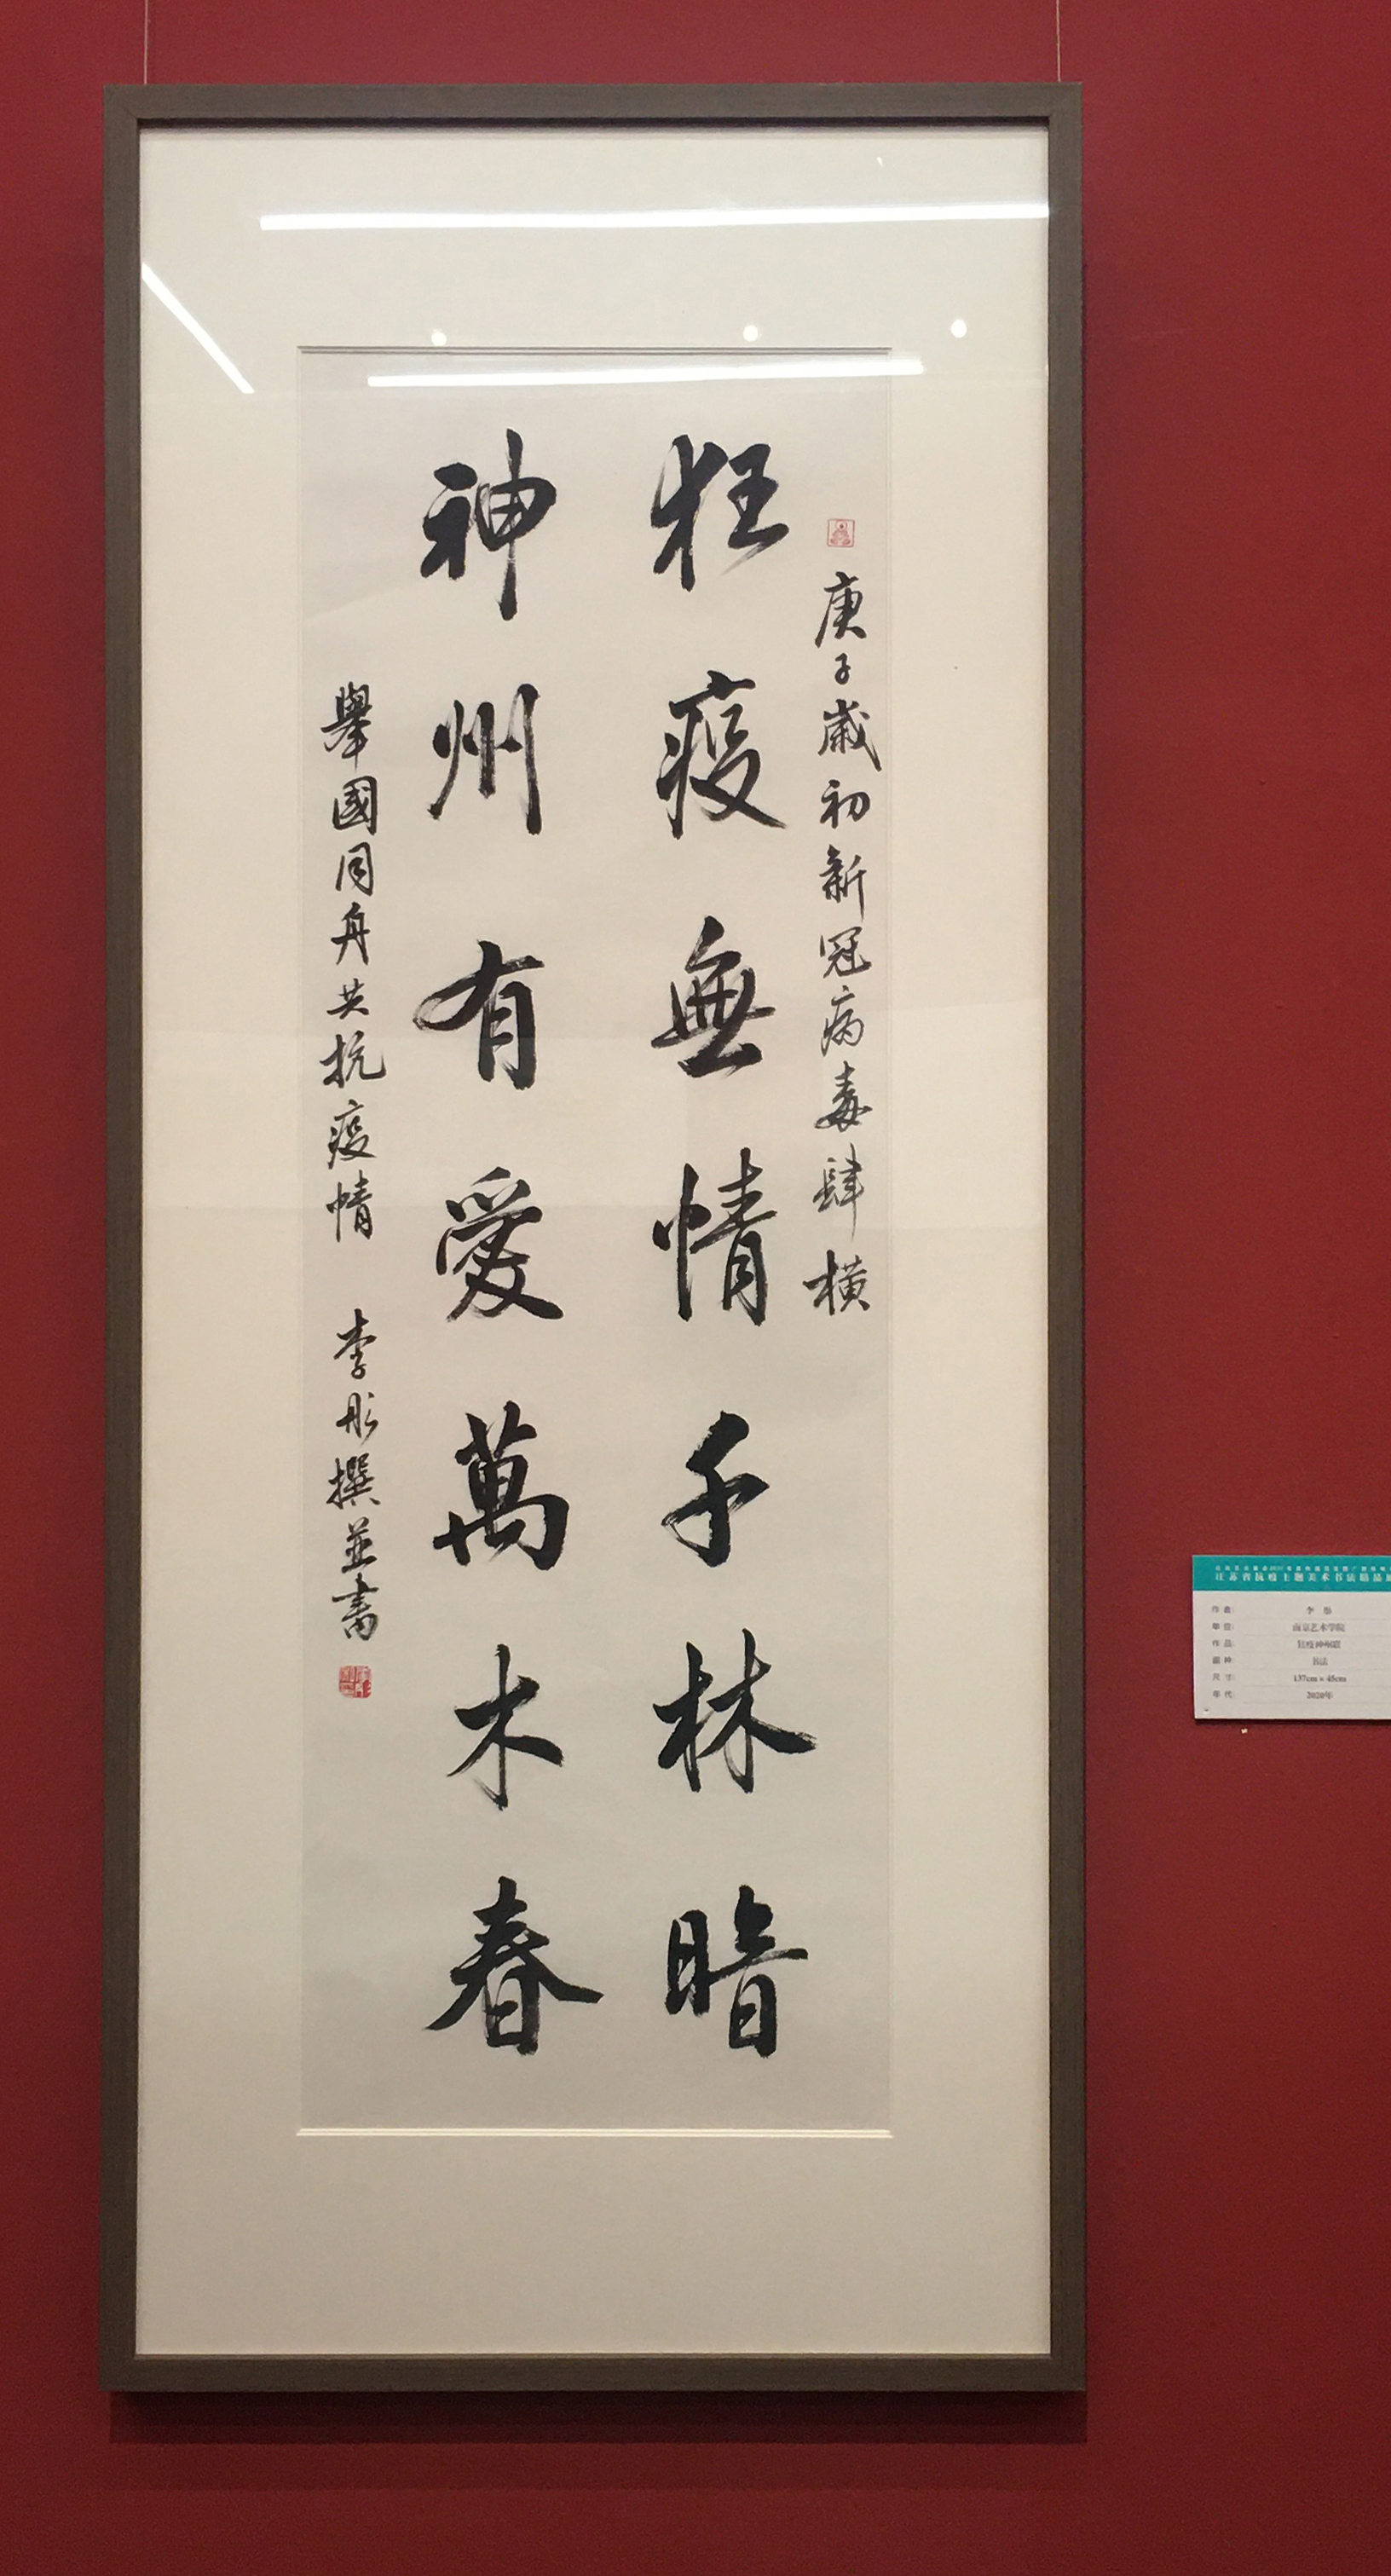 庚子歲初新冠病毒肆橫
狂疫無情千林暗
神州有愛萬木春
舉國同舟共抗疫情
李彤撰並書
江苏省抗疫主题美术书法精品展
作者: 李 彤
单位: 南京艺术学院
作品: 狂疫神州联
画种: 书法
尺寸: 137cm×45cm
年代: 2020年